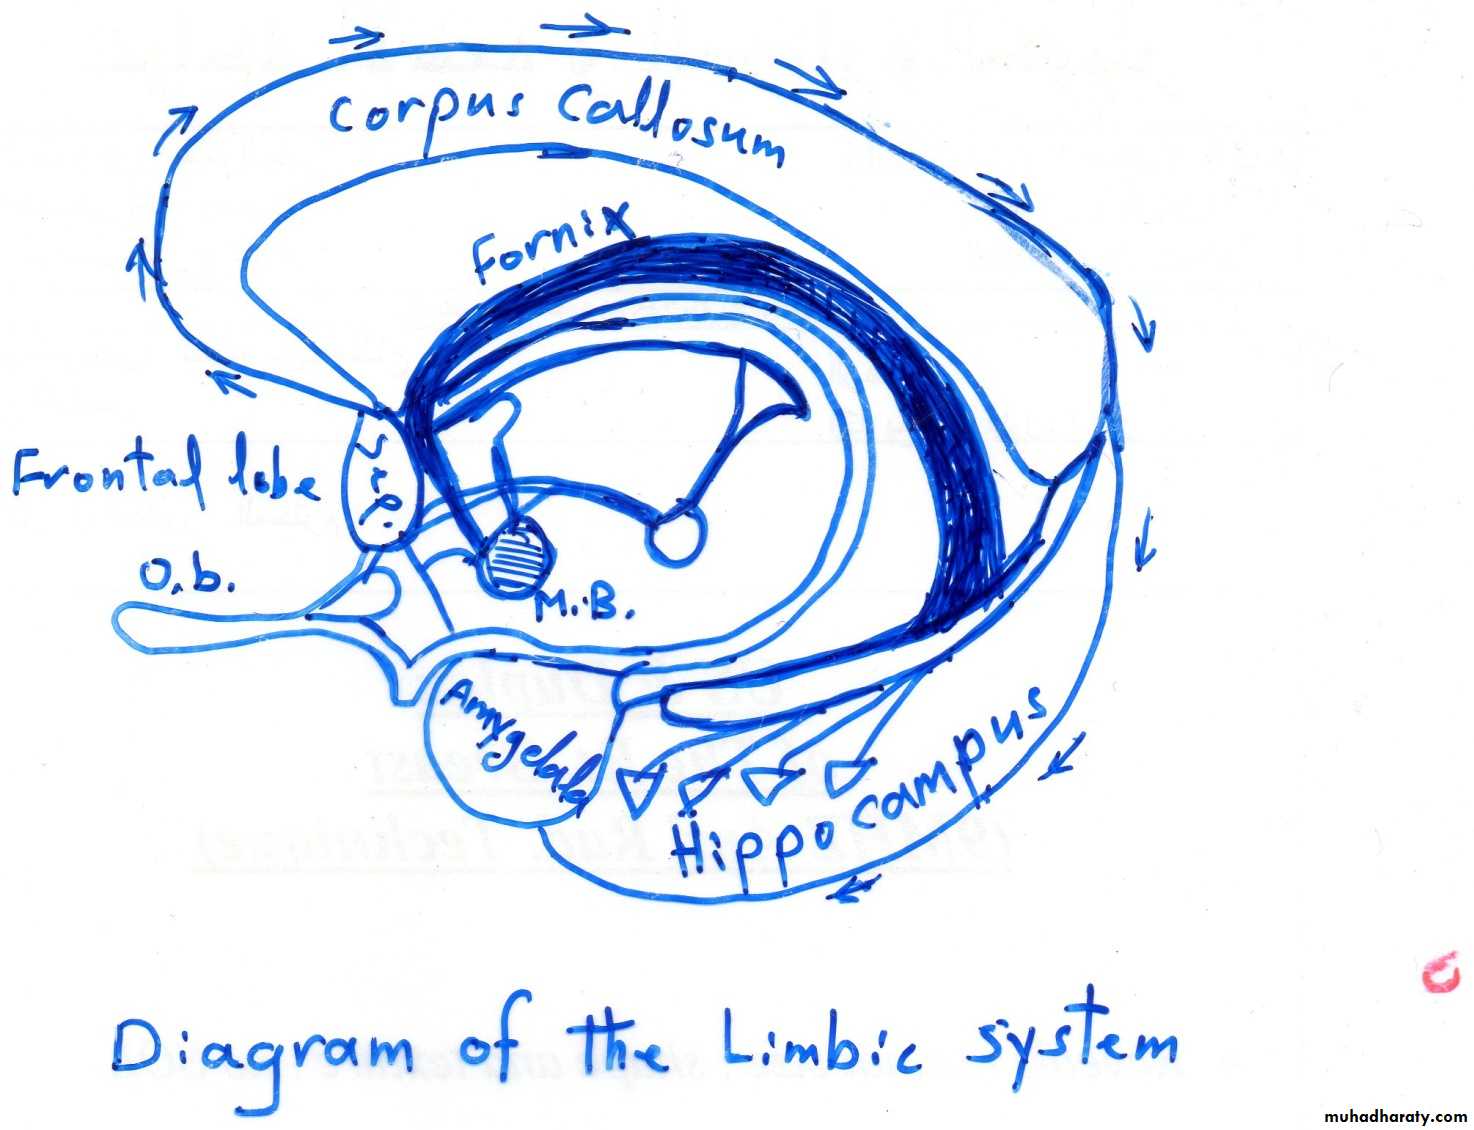 Corpus Callosum
Fornix
Frontal lobe
S.r.p.
O.b.
M.B.
Amygdala
Hippocampus
Diagram of the Limbic system
muhadharaty.com